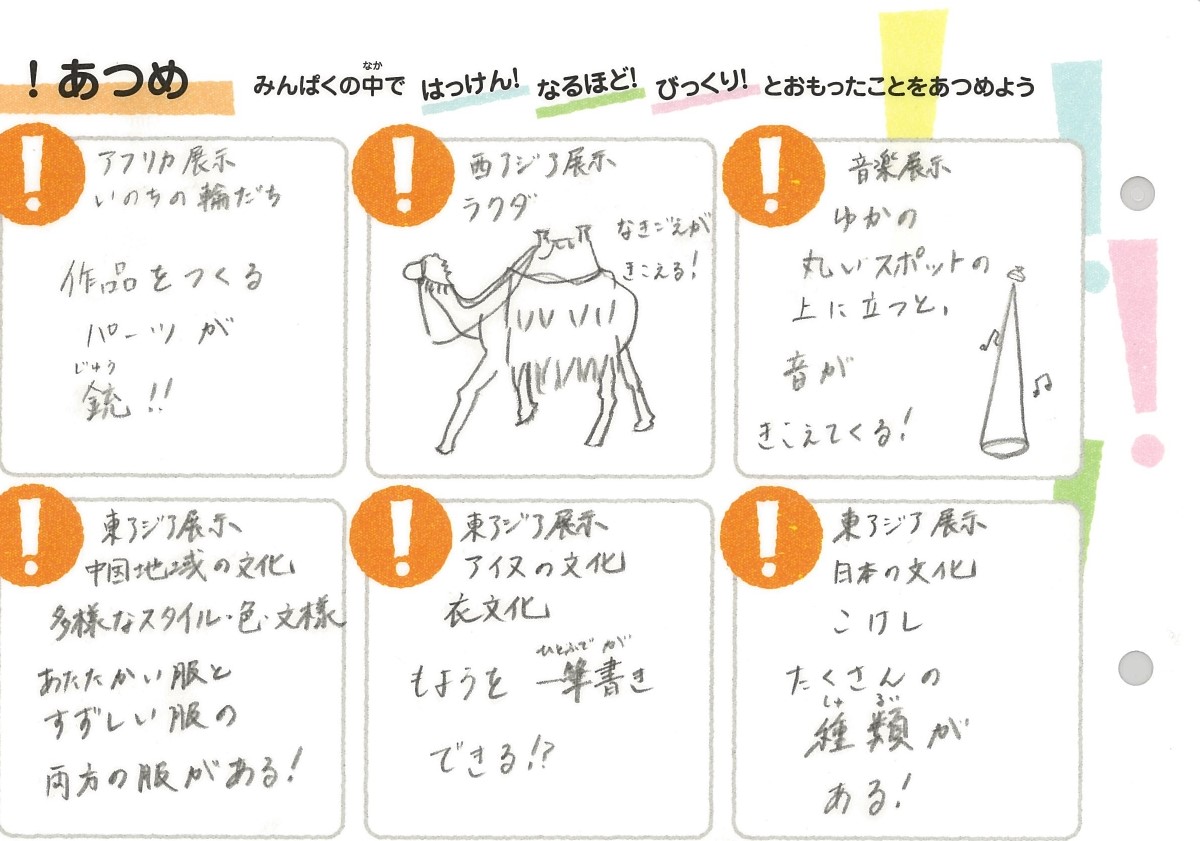 ！あつめ
みんぱくの中で はっけん！ なるほど！ びっくり！ とおもったことをあつめよう
なか
アフリカ展示
いのちの輪だち
作品をつくる
パーツが
じゅう
銃!!
西アジア展示
ラクダ
なきごえが
きこえる!
音楽展示
ゆかの
丸いスポットの
上に立つと、
音が
きこえてくる!
東アジア展示
中国地域の文化
多様なスタイル・色・文様
あたたかい服と
すずしい服の
両方の服がある!
東アジア展示
アイヌの文化
衣文化
ひとふでが
もようを一筆書き
できる!?
東アジア展示
日本の文化
こけし
たくさんの
しゅるい
種類が
ある!